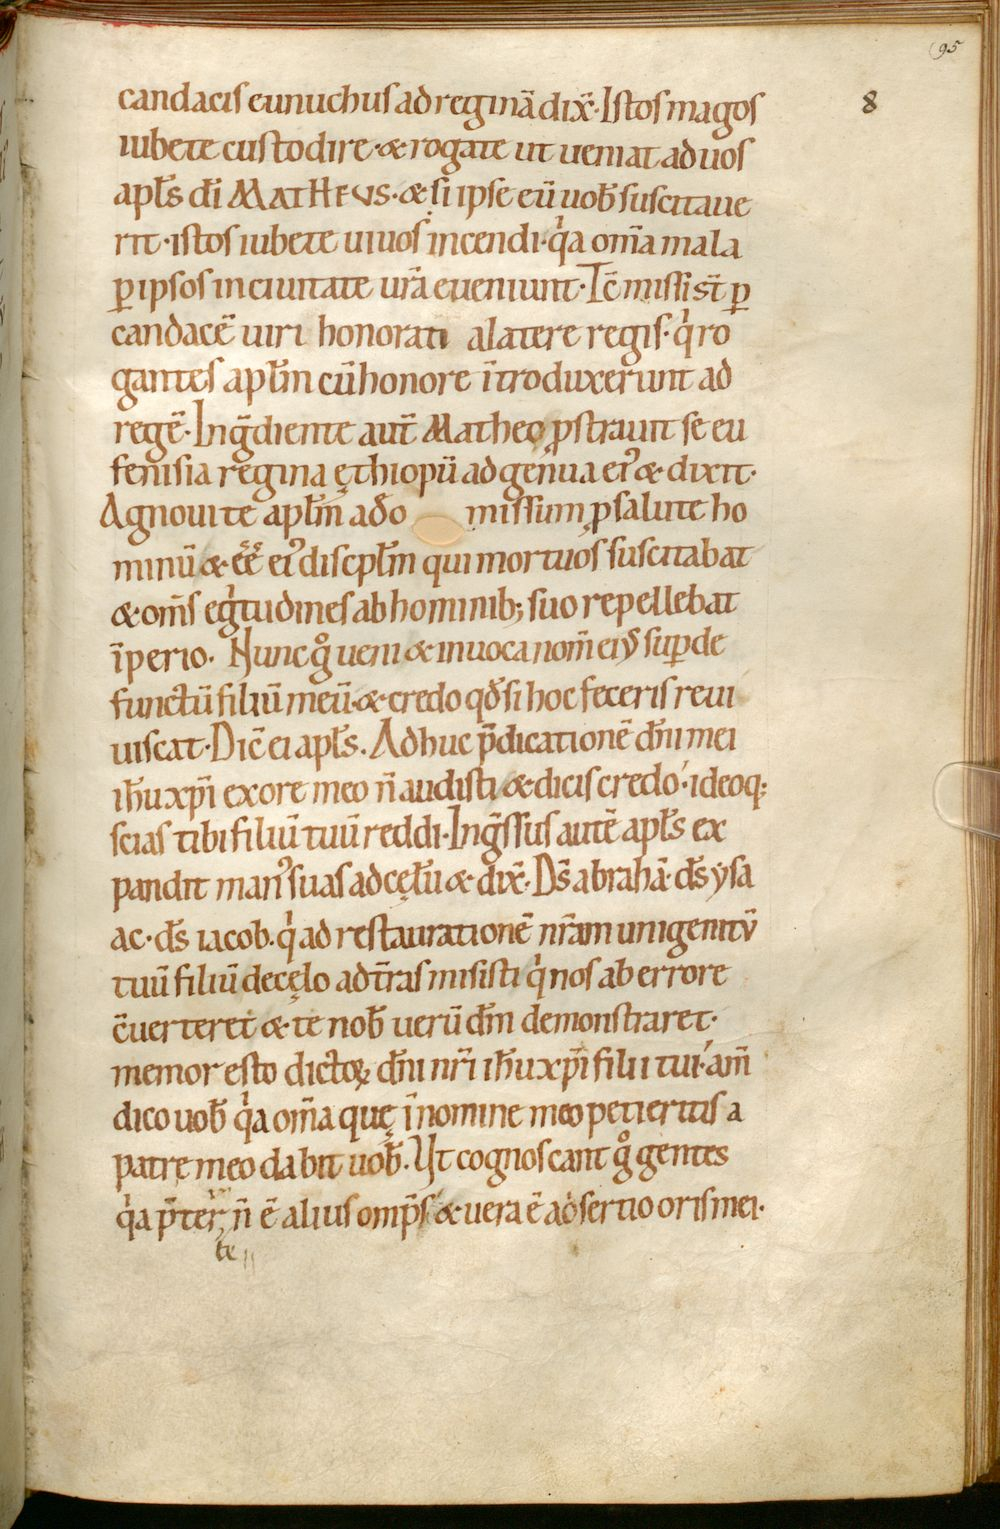 95
8
candacis eunuchus ad reginā dix̄. Istos magos
iubete custodire. & rogate ut ueniat ad uos
apl̄s dī MATHEUS. & si ipse eū uob̄ suscitaue
rit. istos iubete uiuos incendi. q̇a om̄a mala
ꝑ ipsos in ciuitate ur̄a eueniunt. Tc̄ missi st̄ ꝑ
candacē uiri honorati a latere regis. q̇ ro
gantes apl̄m cū honore īntroduxerunt ad
regē. Ingr̄diente aut̄ Matheo ꝓstrauit se eu
fenisia regina ęthiopū ad genua ei᾽ & dixit.
Agnoui te apl̄m a do missum ꝓ salute ho
minū & ēē ei᾽ discpl̄m qui mortuos suscitabat
& om̄s eg̍tudines ab hominib; suo repellebat
īperio. Nunc g̊ ueni & inuoca nom̄ ei᾽ suꝑ de
functū filiū meū. & credo qđ si hoc feceris reui
uiscat. Dic̄ ei apl̄s. Adhuc p̄dicationē dn̄i mei
ih̄u xp̄i ex ore meo n̄ audisti & dicis credo. ideoq;
scias tibi filiū tuū reddi. Ingr̄ssus autē apl̄s ex
pandit man᾽ suas ad cęlū & dix̄. Ds̄ abrahā. ds̄ ysa
ac. ds̄ iacob. q̇ ad restaurationē nr̄am unigenitū
tuū filiū de cęlo ad tr̄as misisti q̇ nos ab errore
c̄uerteret & te nob̄ uerū dm̄ demonstraret.
memor esto dictoꝝ dn̄i nr̄i ih̄u xp̄i filii tui. am̄
dico uob̄ q̇a om̄a quę ī nomine meo petieritis a
patre meo dabit uob̄. Ut cognoscant g̊ gentes
q̇a p̄ter n̄ ē alius omp̄s & uera ē adsertio oris mei.
te